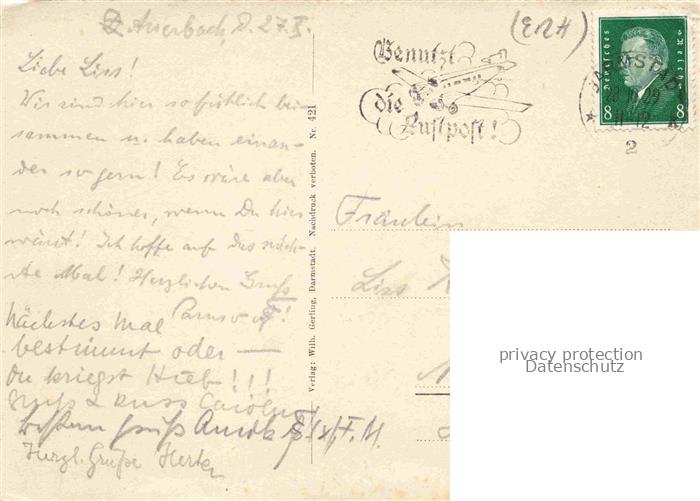 Auerbach, d. 27. X.
Liebe Liss!
Wir sind hier so fröhlich bei-
sammen u. haben einan-
der so gern! Es wäre aber
noch schöner, wenn Du hier
wärst! Ich hoffe auf das näch-
ste Mal! Herzlichen Gruß
Nächstes Mal
bestimmt oder —
Du kriegst Hieb!!!
Gruß & Kuss
Besten Gruß
Herzl. Grüße
Verlag: Wilh. Gerling, Darmstadt. Nachdruck verboten. Nr. 421
Benutzt
die
Luftpost!
Deutsches Reich
8 8
DARMSTADT
2
Fräulein
Liss
privacy protection
Datenschutz